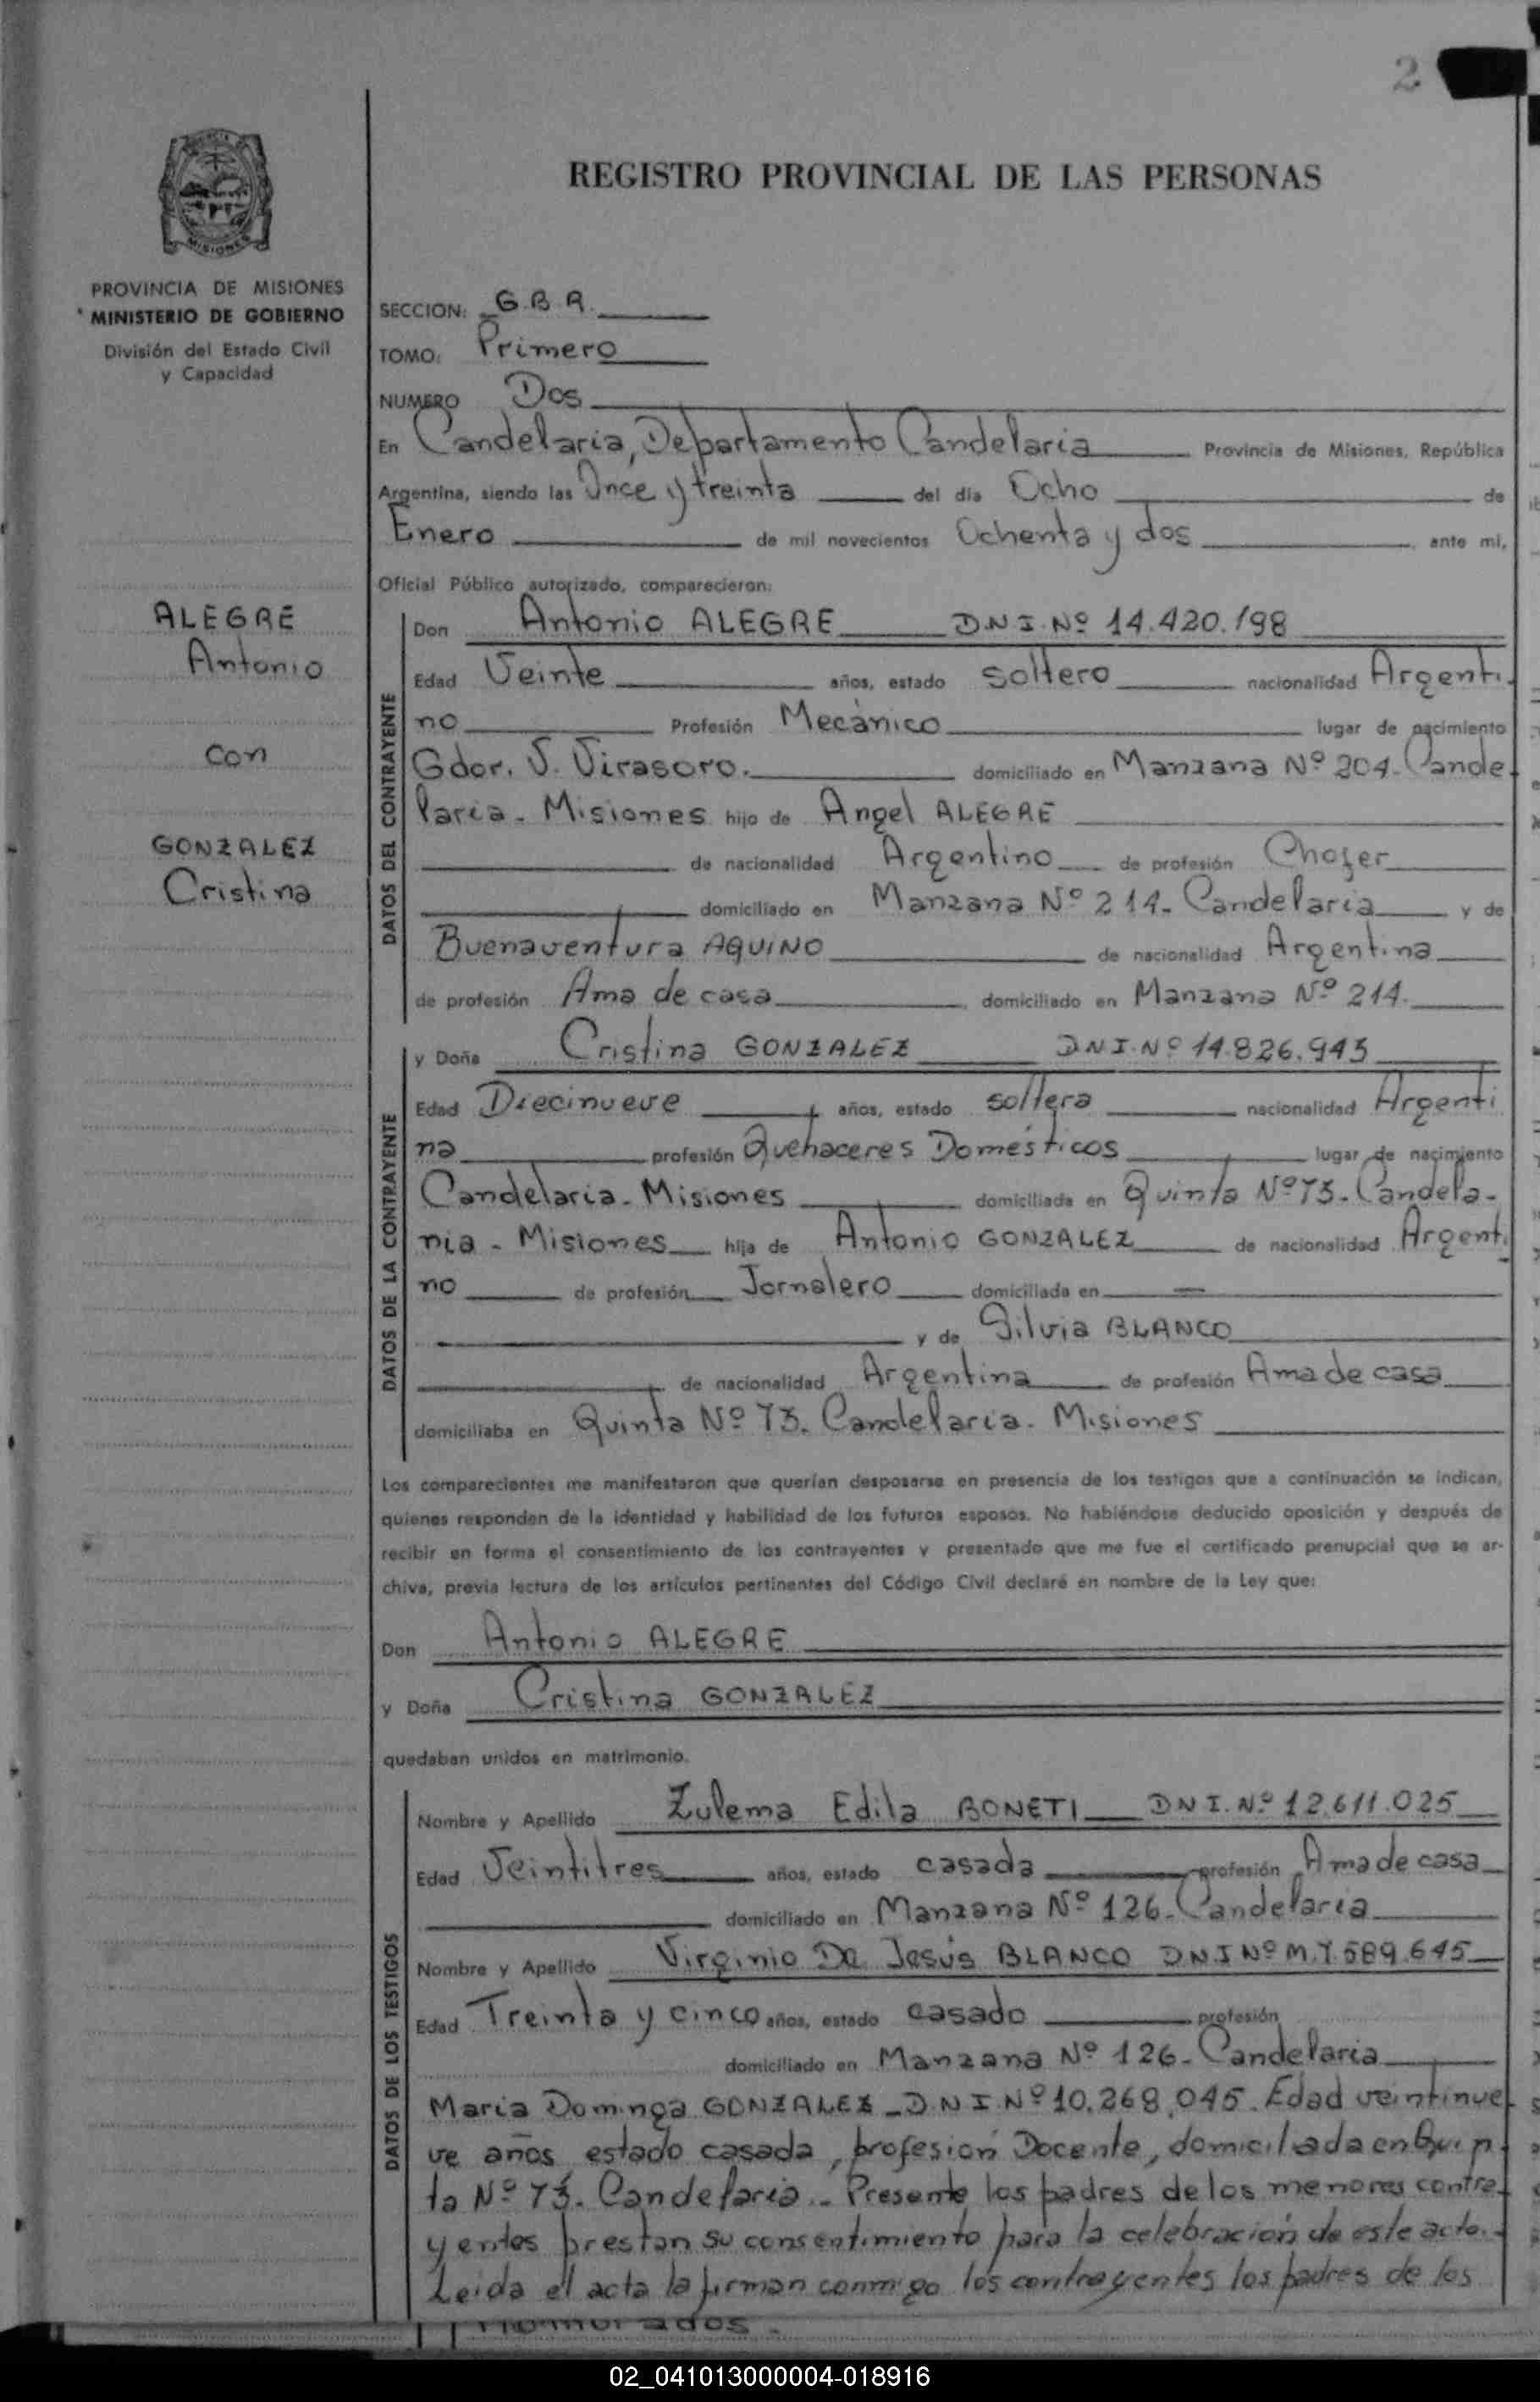 2
REGISTRO PROVINCIAL DE LAS PERSONAS
MISIONES
PROVINCIA DE MISIONES
MINISTERIO DE GOBIERNO
División del Estado Civil
y Capacidad
ALEGRE
Antonio
con
GONZALEZ
Cristina
SECCION: G.B.A.
TOMO: Primero
NUMERO Dos
En Candelaria, Departamento Candelaria Provincia de Misiones, República
Argentina, siendo las Once y treinta del día Ocho de
Enero de mil novecientos Ochenta y dos ante mi,
Oficial Público autorizado, comparecieron:
DATOS DEL CONTRAYENTE
Don Antonio ALEGRE D.N.I. Nº 14.420.198
Edad Veinte años, estado soltero nacionalidad Argenti-
no Profesión Mecánico lugar de nacimiento
Gdor. V. Virasoro. domiciliado en Manzana Nº 204. Cande-
laria - Misiones hijo de Angel ALEGRE
de nacionalidad Argentino de profesión Chofer
domiciliado en Manzana Nº 214. Candelaria y de
Buenaventura AQUINO de nacionalidad Argentina
de profesión Ama de casa domiciliado en Manzana Nº 214.
DATOS DE LA CONTRAYENTE
y Doña Cristina GONZALEZ DNI. Nº 14.826.943
Edad Diecinueve años, estado soltera nacionalidad Argenti
na profesión Quehaceres Domésticos lugar de nacimiento
Candelaria - Misiones domiciliada en Quinta Nº 73. Candela-
ria - Misiones hija de Antonio GONZALEZ de nacionalidad Argenti
no de profesión Jornalero domiciliada en —
y de Silvia BLANCO
de nacionalidad Argentina de profesión Ama de casa
domiciliaba en Quinta Nº 73. Candelaria - Misiones
Los comparecientes me manifestaron que querían desposarse en presencia de los testigos que a continuación se indican,
quienes responden de la identidad y habilidad de los futuros esposos. No habiéndose deducido oposición y después de
recibir en forma el consentimiento de los contrayentes y presentado que me fue el certificado prenupcial que se ar-
chiva, previa lectura de los artículos pertinentes del Código Civil declaré en nombre de la Ley que:
Don Antonio ALEGRE
y Doña Cristina GONZALEZ
quedaban unidos en matrimonio.
DATOS DE LOS TESTIGOS
Nombre y Apellido Zulema Edila BONETI DNI. Nº 12.611.025
Edad Veintitres años, estado casada profesión Ama de casa
domiciliado en Manzana Nº 126. Candelaria
Nombre y Apellido Virginio De Jesús BLANCO D.N.I Nº M.7.589.645
Edad Treinta y cinco años, estado casado profesión
domiciliado en Manzana Nº 126. Candelaria
Maria Dominga GONZALEZ - D.N.I. Nº 10.268.045. Edad veintinue-
ve años estado casada, profesión Docente, domiciliada en Quin
ta Nº 73. Candelaria.- Presente los padres de los menores contra-
yentes prestan su consentimiento para la celebración de este acto.-
Leída el acta la firman conmigo los contrayentes los padres de los
02_041013000004-018916